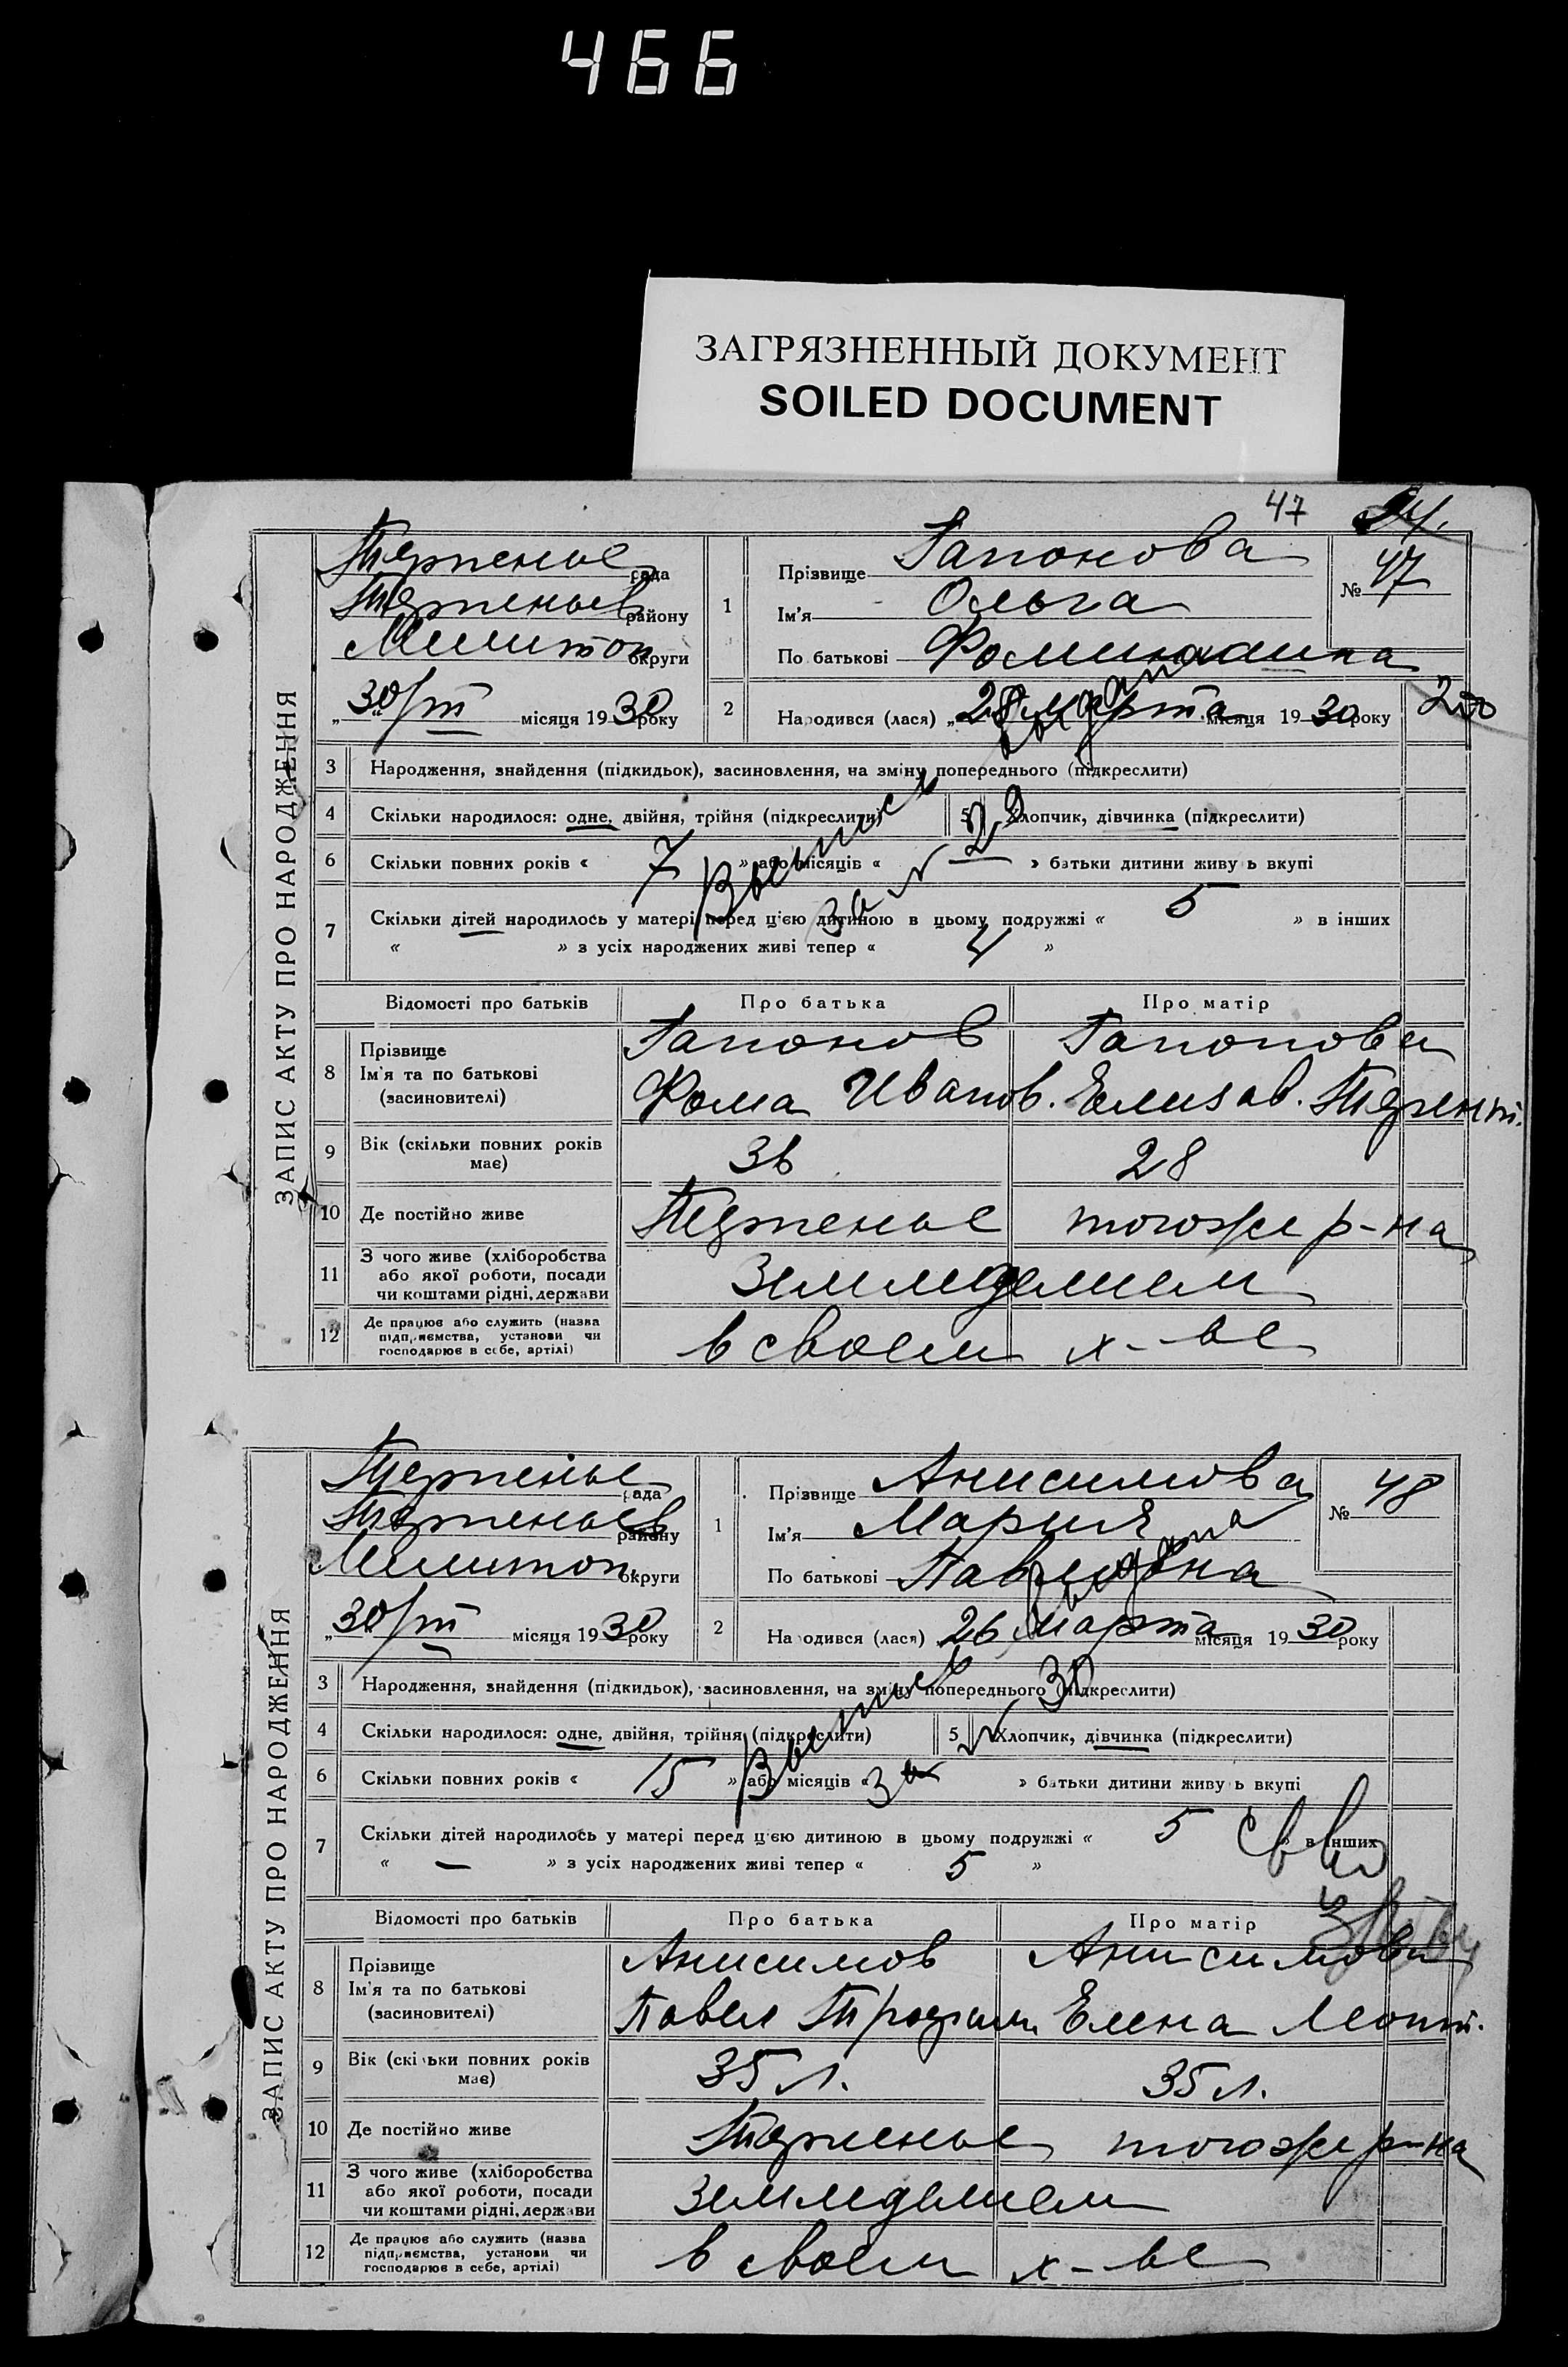 466
ЗАГРЯЗНЕННЫЙ ДОКУМЕНТ
SOILED DOCUMENT
47
ЗАПИС АКТУ ПРО НАРОДЖЕННЯ
Терпенье рада
Терпеньев району
Мелитоп округи
„30/III місяця 1930 року
1 Прізвище Гапонова
Ім'я Ольга
По батькові Фоминишна
№ 47
2 Народився (лася) „28 марта місяця 1930 року
200
3 Народження, знайдення (підкидьок), засиновлення, на зміну попереднього (підкреслити)
4 Скільки народилося: одне, двійня, трійня (підкреслити) 5 Хлопчик, дівчинка (підкреслити)
6 Скільки повних років « 7 » або місяців « » батьки дитини живуть вкупі
Выпись выдана
за № 29
7 Скільки дітей народилось у матері перед цією дитиною в цьому подружжі « 5 » в інших
« » з усіх народжених живі тепер « 4 »
Відомості про батьків Про батька Про матір
8 Прізвище Гапонов Гапонова
Ім'я та по батькові Фома Иванов. Елизав. Терент.
(засиновителі)
9 Вік (скільки повних років має) 36 28
10 Де постійно живе Терпенье тогоже р-на
11 З чого живе (хліборобства або якої роботи, посади чи коштами рідні, держави Земледелием
12 Де працює або служить (назва підприємства, установи чи господарює в себе, артілі) в своем х-ве
ЗАПИС АКТУ ПРО НАРОДЖЕННЯ
Терпенье рада
Терпеньев району
Мелитоп. округи
„30/III місяця 1930 року
1 Прізвище Анисимова
Ім'я Мария
По батькові Павловна
№ 48
2 Народився (лася) 26 марта місяця 1930 року
3 Народження, знайдення (підкидьок), засиновлення, на зміну попереднього (підкреслити)
4 Скільки народилося: одне, двійня, трійня (підкреслити) 5 Хлопчик, дівчинка (підкреслити)
6 Скільки повних років « 15 » або місяців « » батьки дитини живуть вкупі
Выпись выдана
за № 30
7 Скільки дітей народилось у матері перед цією дитиною в цьому подружжі « 5 » в інших
« — » з усіх народжених живі тепер « 5 »
Відомості про батьків Про батька Про матір
8 Прізвище Анисимов Анисимова
Ім'я та по батькові Павел Елена Леонт.
(засиновителі)
9 Вік (скільки повних років має) 35 л. 35 л.
10 Де постійно живе Терпенье тогоже р-на
11 З чого живе (хліборобства або якої роботи, посади чи коштами рідні, держави земледелием
12 Де працює або служить (назва підприємства, установи чи господарює в себе, артілі) в своем х-ве